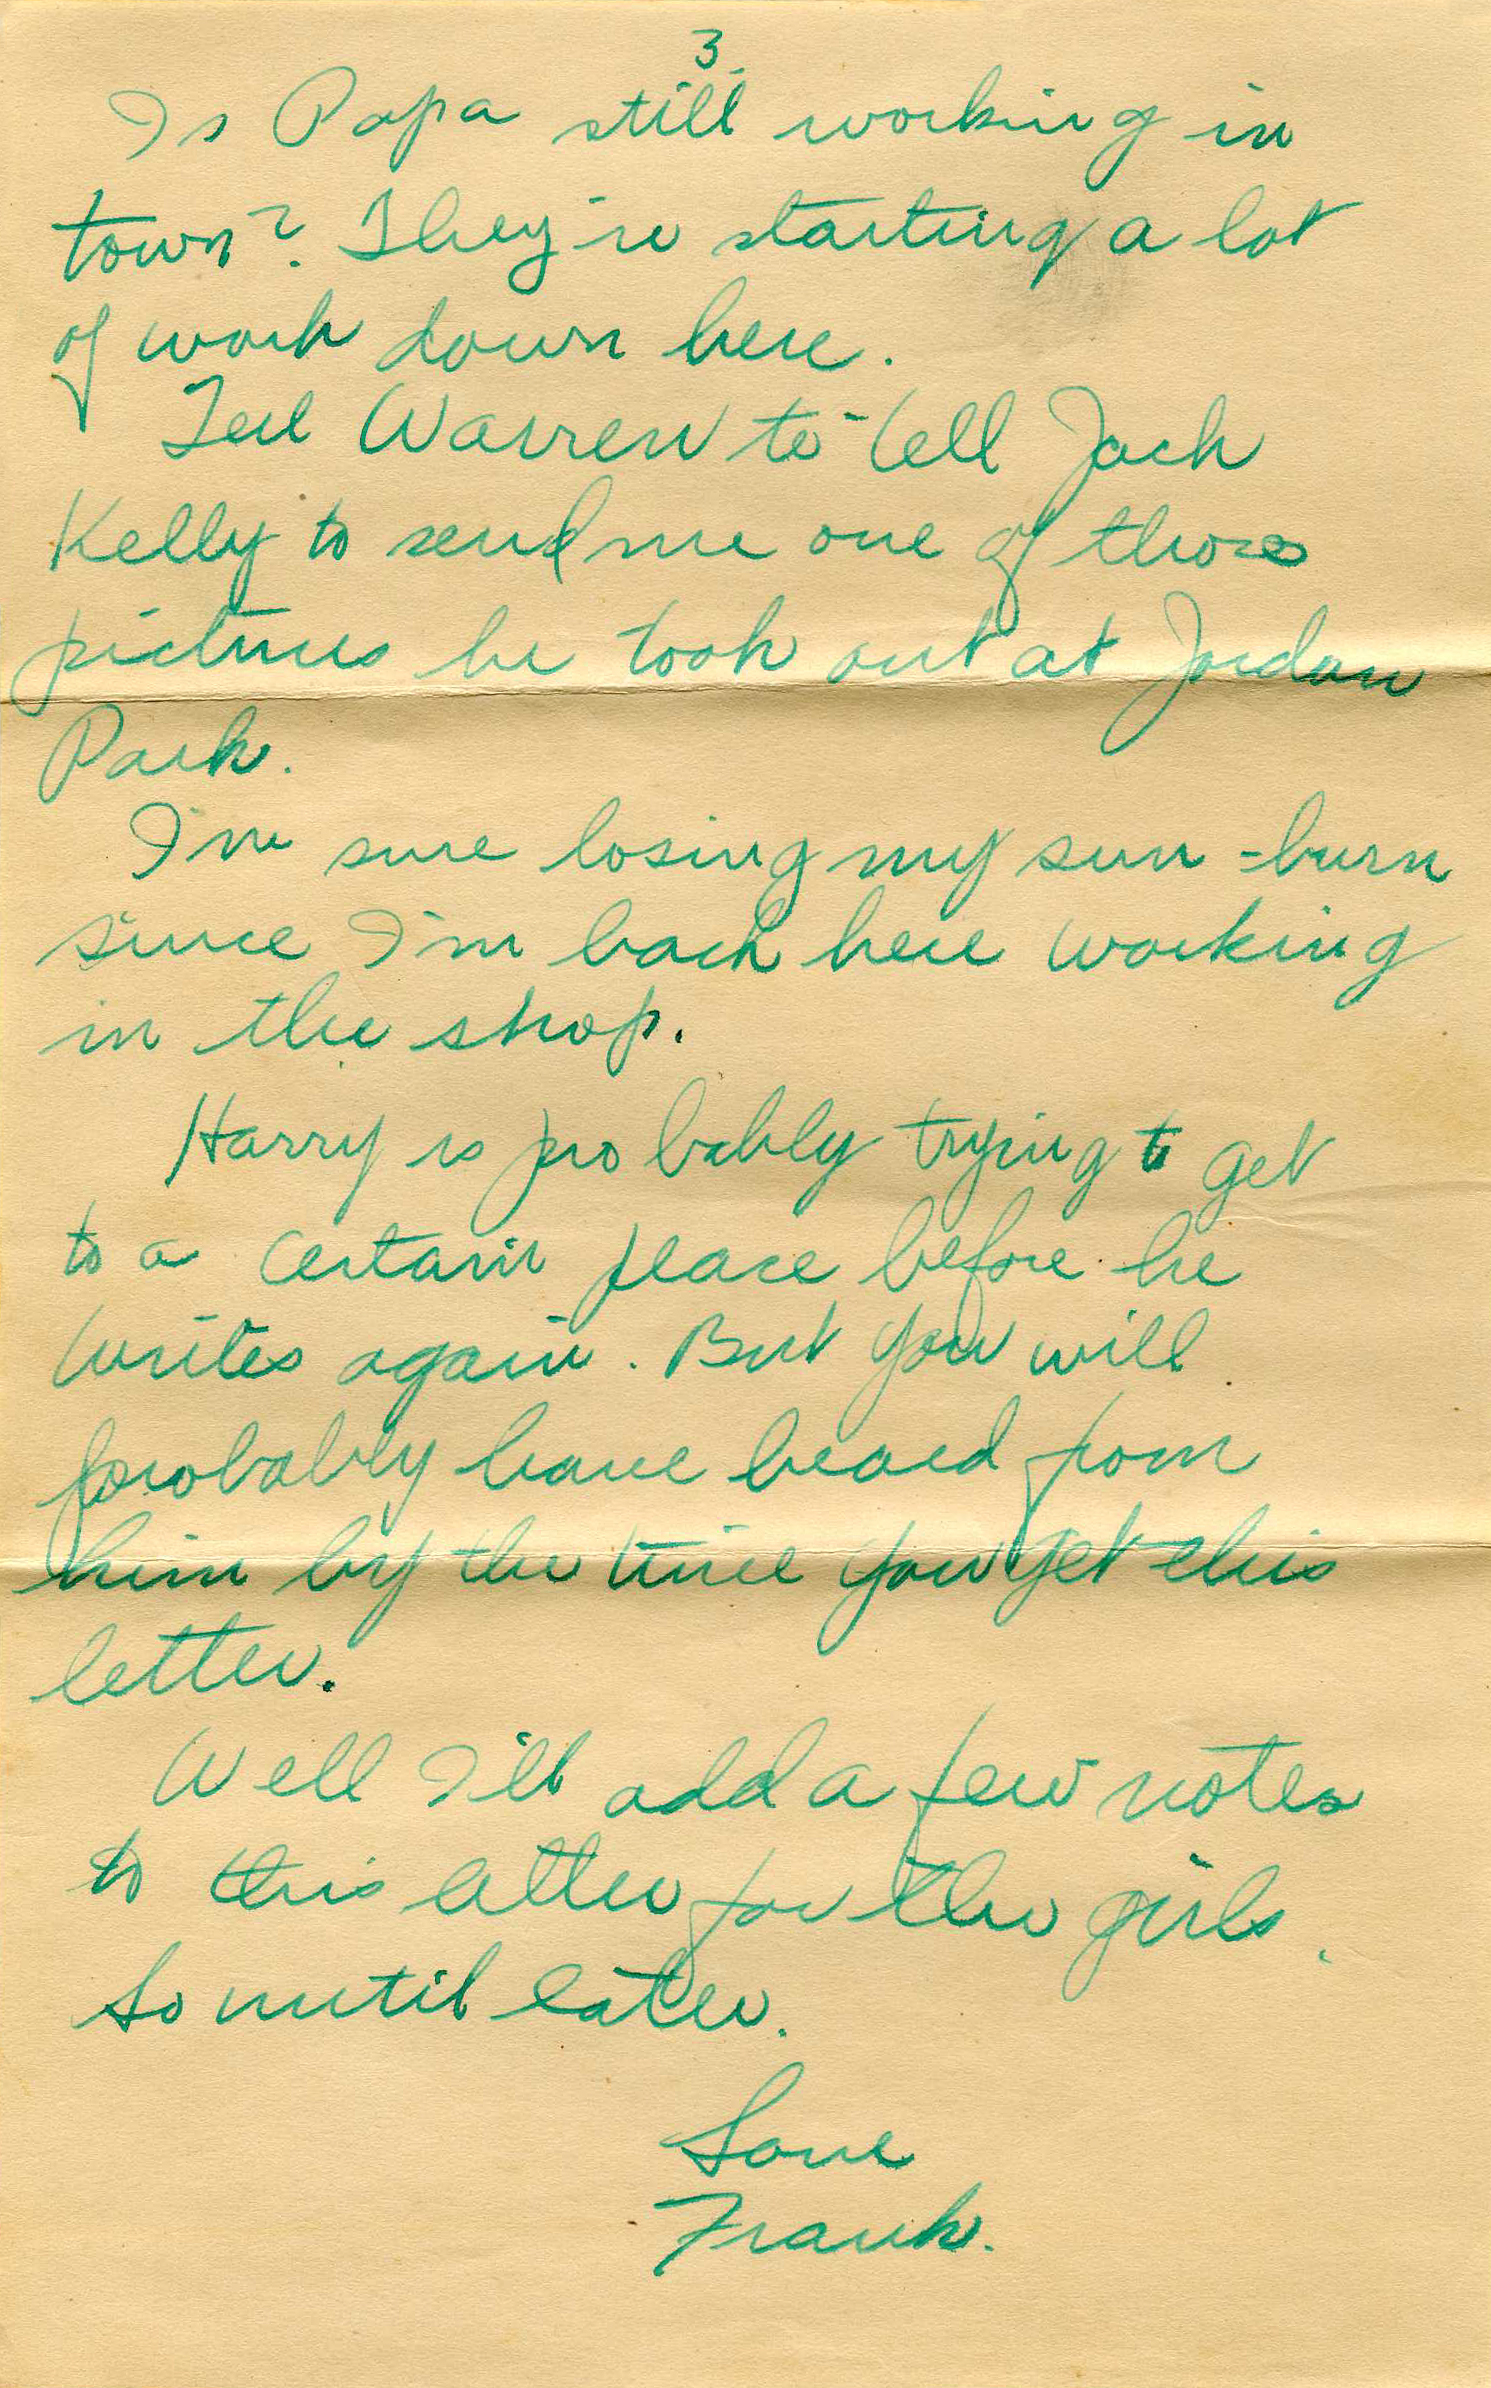 3
Is Papa still working in
town? They're starting a lot
of work down here.
Tell Warren to tell Jack
Kelly to send me one of those
pictures he took out at Jordan
Park.
I'm sure losing my sun-burn
since I'm back here working
in the shop.
Harry is probably trying to get
to a certain place before he
writes again. But you will
probably have heard from
him by the time you get this
letter.
Well I'll add a few notes
to this letter for the girls.
So until later.
Love
Frank.